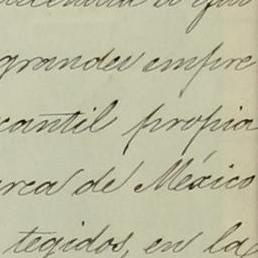 grandes empre
cantil propia
rca de México
tegidos, en la